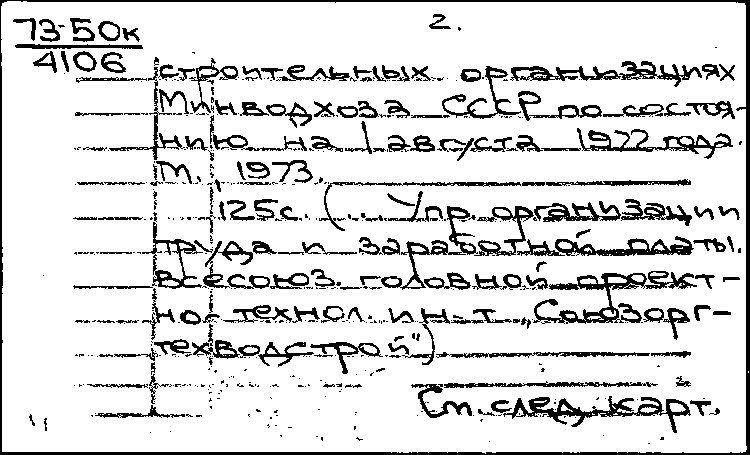 2.
73-50к
4106
строительных организациях
Минводхоза СССР по состоя-
нию на 1 августа 1972 года.
М., 1973.
125с. (... Упр. организации
труда и заработной платы.
Всесоюз. головной проект-
но-технол. ин-т „Союзорг-
техводстрой")
См. след. карт.